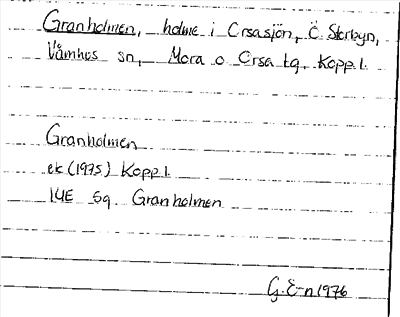 Granholmen, holme i Orsasjön, Ö. Storbyn,
Våmhus sn, Mora o Orsa tg, Kopp.l.
Granholmen
ek (1975) Kopp.l.
14E 5g Granholmen
G. E-n 1976